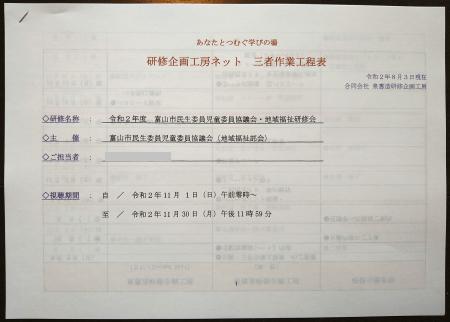 あなたとつむぐ学びの場
研修企画工房ネット　三者作業工程表
令和２年８月３日現在
合同会社 泉惠造研修企画工房
◇研修名称　：　令和２年度　富山市民生委員児童委員協議会・地域福祉研修会
◇主　　催　：　富山市民生委員児童委員協議会（地域福祉部会）
◇ご担当者　：
◇視聴期間　：　自　／　令和２年１１月　１日（日）午前零時～
至　／　令和２年１１月３０日（月）午後１１時５９分